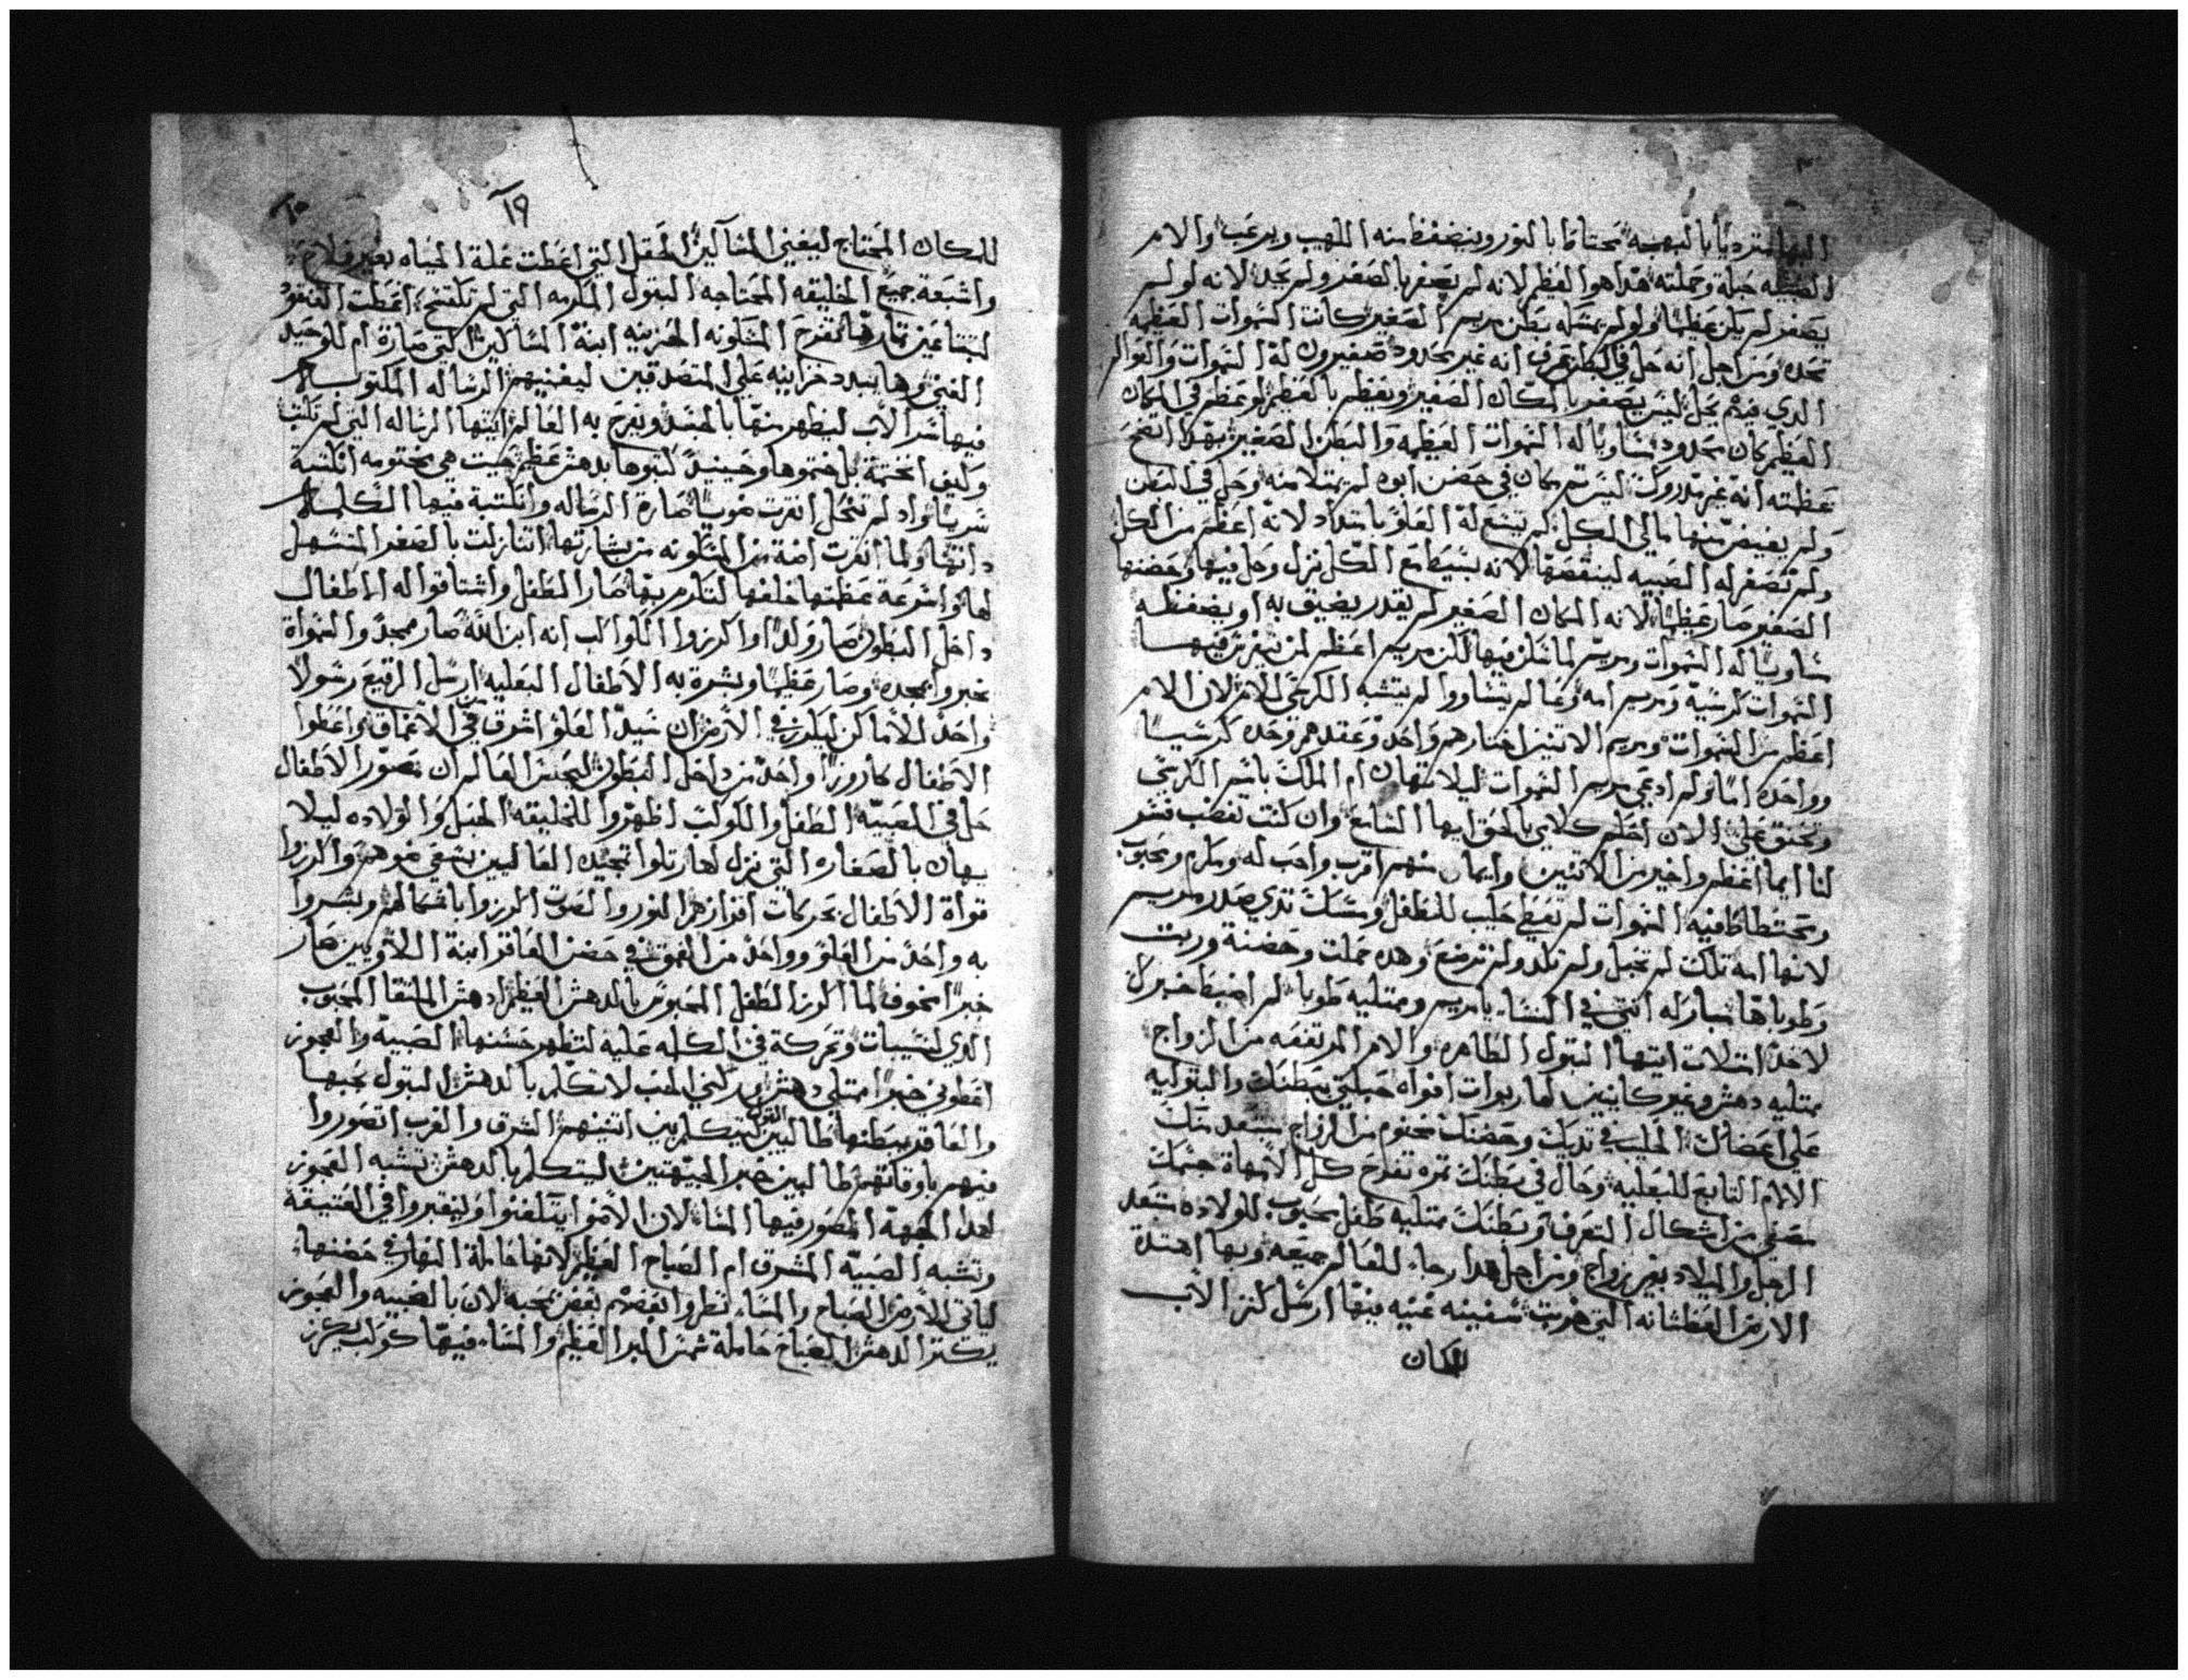 البها متردياً بالبهجه محتاطا بالنور وينضغط منه اللهيب ويرعب والام
الصبيه حبله وحملته هدا هوا العظيم لانه لم يصغر بالصغر ولم يحد لانه لو لم
يصغر لم يكن عظيماً ولو لم يمسكه بطن مريم الصغير كانت السموات العظيمه
تحده ومن اجل انه حل في البطن عرف انه غير محدود صغيرون له السموات والعوالم
الدي فيهم يحل ليس يصغر بالمكان الصغير ويعظم بالعظيم لو عظم في المكان
العظيم كان محدود مساوياً له السموات العظيمه والبطن الصغير بهدا اتضح
عظمته انه غير مدروك ليس ثم مكان في حضن ابوه لم يمتلا منه وحل في البطن
ولم يفيض منها مالي الكل لم تتسع له العلو بامتداد لانه اعظم من الكل
ولم تصغر له الصبيه لينقصها لانه بسيط مع الكل نزل وحل فيها وحضنها
الصغير صار عظيماً لانه المكان الصغير لم يقدر يضيق به او يضغطه
ساويا له السموات ومريم لما سكن فيها لكن مريم اعظم لمن يميز فيها
السموات كرسيه ومريم امه وعما لم يتساووا لم يتشبه الكرسي للام لان الام
اعظم من السموات ومريم الاتنين اختارهم واحد وعقدهم وحده كرسياً
وواحده اماً ولم ادعي مريم السموات ليلا تهان ام الملك باسم الكرسي
وتحنق علي الان احلم كلامي بالحق ايها السامع وان كنت تغضب فسر
لنا ايما اعظم واخير من الاتنين وايما منهم اقرب واحب له ومكرم ومحبوب
وتحتطاطا فيه السموات لم تعطي حليب للطفل ومسك تدي صدر مريم
لانها امه تلك لم تحبل ولم تلد ولم ترضع وهده حملت وحضنة وربت
وطوباها مباركه انتي في النسا يا مريم وممتليه طوبا لم اضبط خبرك
لاحد امتلات ايتها البتول الطاهره والام المرتفعه من الزواج
ممتليه دهش وغير كاينين لها ربوات افواه حبلتي ببطنك والبتوليه
علي اعضاك الحليب في تديك وحضنك مختوم من الزواج مبتعد منك
الالام التابع للبعليه وحال في بطنك تمره تفرح كل الامهاة جسمك
معفي من اشكال التعرف وبطنك ممتليه طفل محبوب للولاده ستعد
الرجل والميلاد بغير زواج ومن اجل هدا رجاء للعالم جميعه وبها اهتدة
الارض العطشانه التي هربت سفينه غنيه فيها ارسل كنز الاب
للمكان
١٩
للمكان المحتاج ليغني المساكين الحقل التي اعطت غلة المياه بغير فلاح
واشبعة جميع الخليقه المحتاجه البتول الكرمه التي لم تكتسح اعطت العنقود
لتبتاعين تمارها لتفرح المسكونه الحزينه ابنة المساكين التي صارة ام للوحيد
الغني وها يبدد خزاينه علي المتصدقين ليغنيهم الرساله المكتوب
فيها سر الاب ليظهر منها بالجسد ويفرح به العالم ايتها الرساله التي لم تكتب
وكيف انختمة بل ختموها وحينيدً كتبوها بدهش عظيم حيت هي مختومه اتكتبة
سرياً واد لم تنحل انقرت موسياً صارة الرساله وانكتبة فيها الكلمه
داخل البطون صار ولداً واكرزوا الكواكب انه ابن الله صار ممجد والسمواة
خبروا بمجده وصار عظيماً وبشرة به الاطفال البعليه ارسل الرقيع رسولاً
واحداً لاماكن ليكرز في الارض ان سيد العلو اشرق في الاعماق واعطوا
الاطفال كاروزاً واحد من داخل البطون ليحس العالم ان مصور الاطفال
حل في الصبيه الطفل والكوكب اظهروا للخليقه الحبل والولاده ليلا
يهان بالصغاره التي نزل لها رتلوا تمجيد العاليين بتغي نموهم واكرزوا
قواة الاطفال بحركات افزازهم النور والصوت اكرزوا باشمالهم وبشروا
به واحد من العلو وواحد من العمق في حضن العاقر ابنة اللاويين صار
خبراً مخوف لما اكرز الطفل المحبوس بالدهش العظيم ادهش الملتقا المحبوب
الدي لنسيبات وتحركة في الكلمه عليه لتظهر حسنها الصبيه والعجوز
اعطوني خبراً ممتلي دهش يحركني الحب لاتكلم بالدهش البتول بحبها
والعاقد ببطنها طالبين القول ليتكلم بين اتنينهم الشرق والغرب اتصوروا
فيهم باوقاتهم طالبين خبر الجيهتين ليتكلم بالدهش تشبه العجوز
لهدا الجهة المصور فيها المسا لان الاموا يتلفتوا وليقبروا في العتيقة
وتشبه الصبيه المشرق ام الصباح العظيم لانها حاملة النهار في حضنها
لياتي للارض الصباح والمسا نظروا بعضهم بعض بمحبه لان بالصبيه والعجوز
يكتر الدهش الصباح حاملة شمس البر العظيم والمساء فيها كوكب يكرز